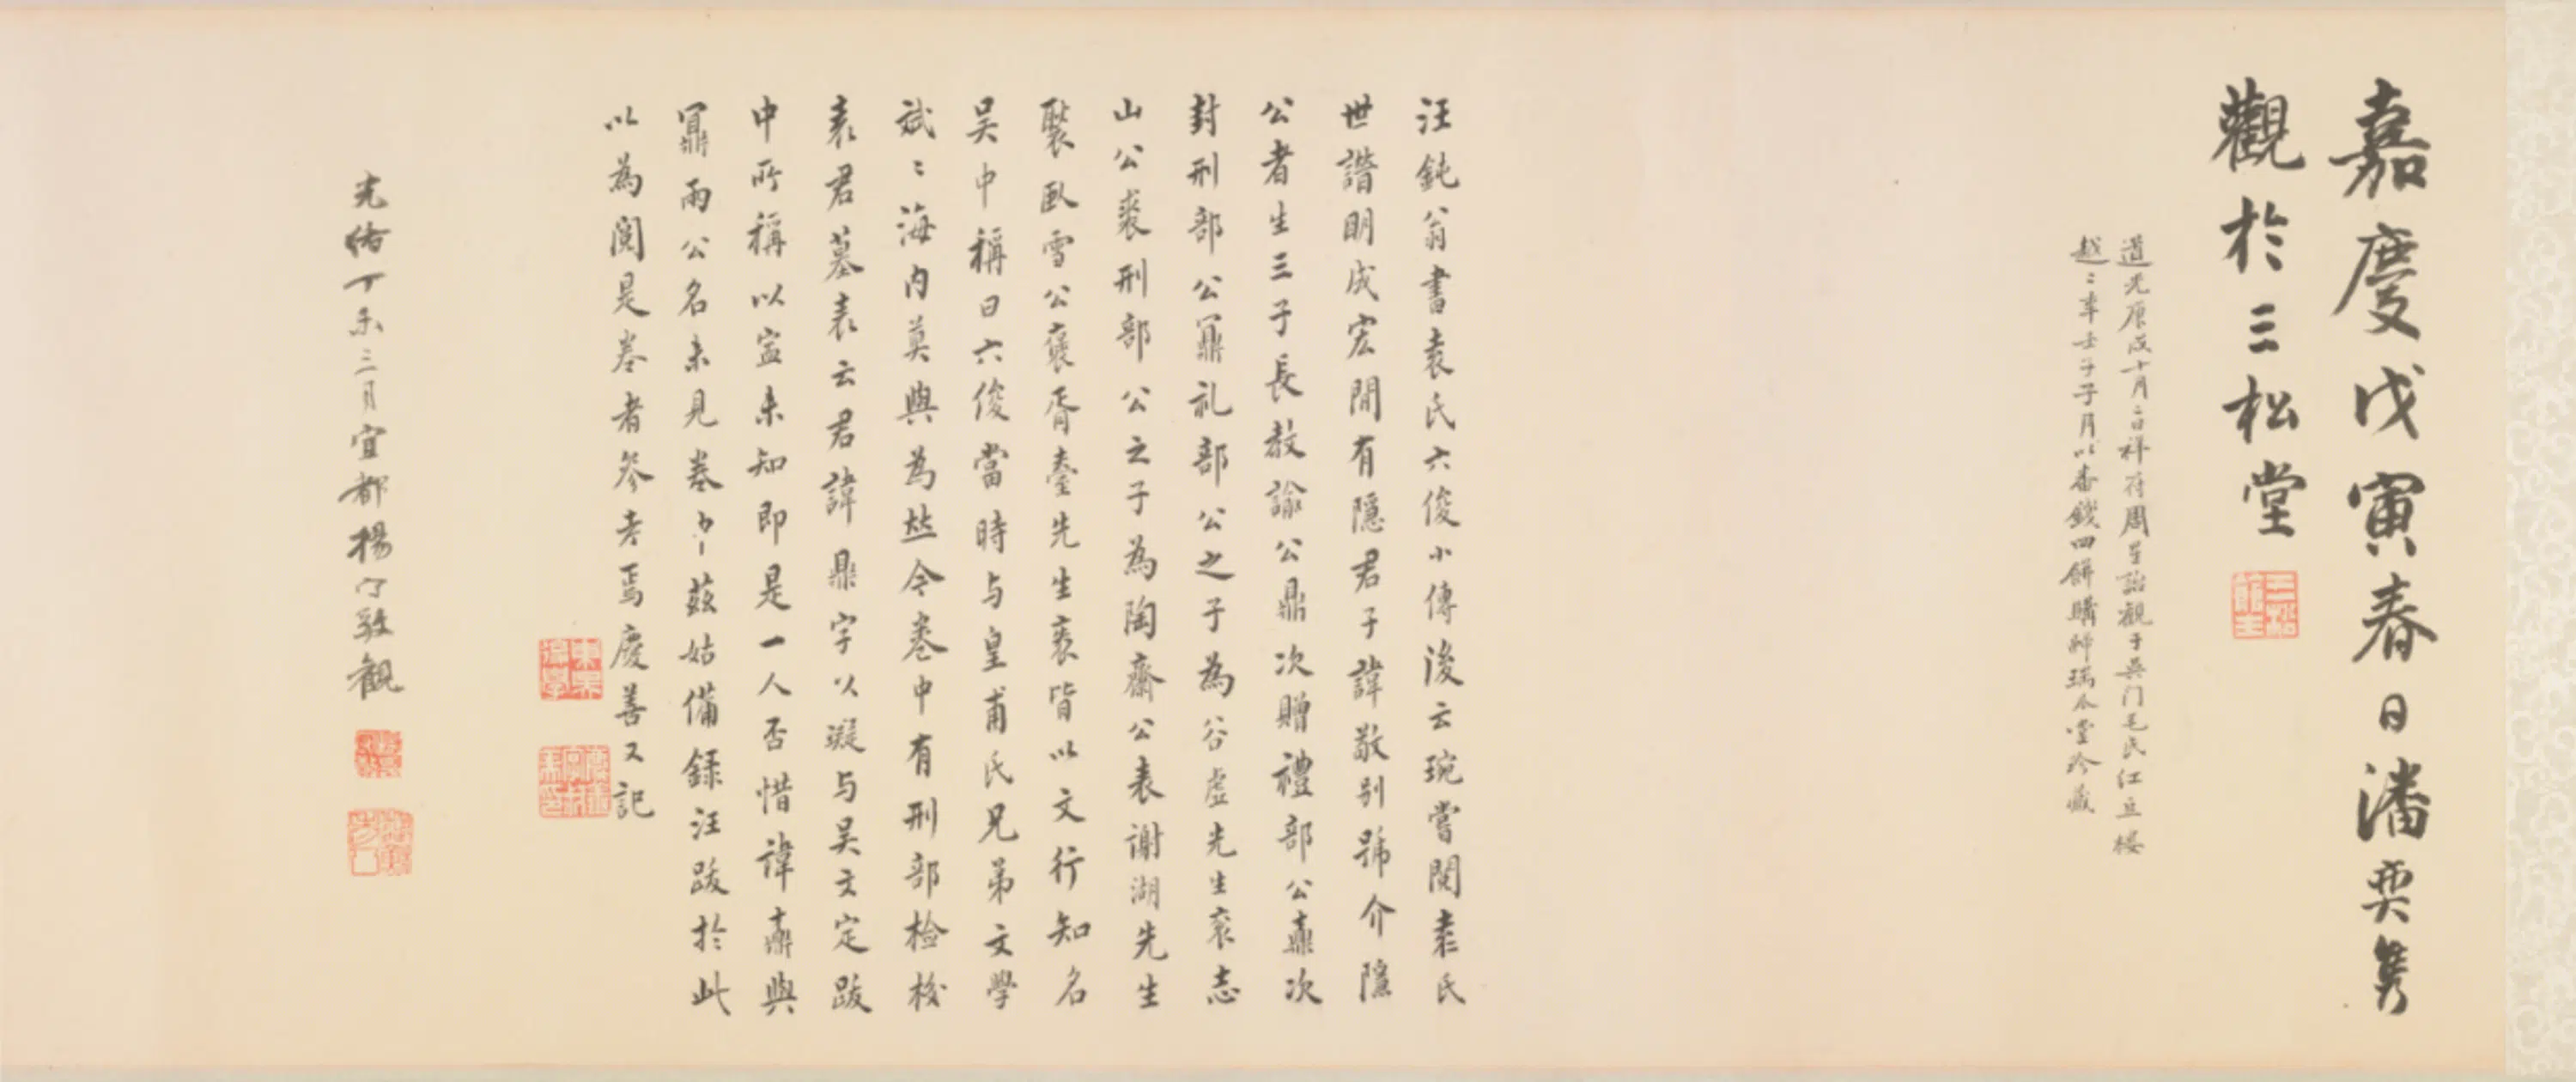 嘉慶戊寅春日潘奕雋
觀於三松堂
道光庚戌十月二日祥符周星詒觀于吳门毛氏紅豆樓
越二年壬子子月以番錢四餅購歸瑞瓜堂珍藏
汪鈍翁書袁氏六俊小傳後云琬嘗閱袁氏
世譜明成宏間有隱君子諱敬別號介隱
公者生三子長教諭公鼎次贈禮部公鼒次
封刑部公鼏礼部公之子為谷虛先生袠志
山公裘刑部公之子為陶齋公表謝湖先生
褧臥雪公褒胥臺先生袠皆以文行知名
吴中稱曰六俊當時与皇甫氏兄弟文學
斌〻海内莫與為埒今卷中有刑部檢校
袁君墓表云君諱鼎字以凝与吴文定跋
中所稱以寍未知即是一人否惜諱鼒與
鼏兩公名未見卷中茲姑備録汪跋於此
以為閱是卷者參考焉慶善又記
光緒丁未三月宜都楊守敬觀
三松